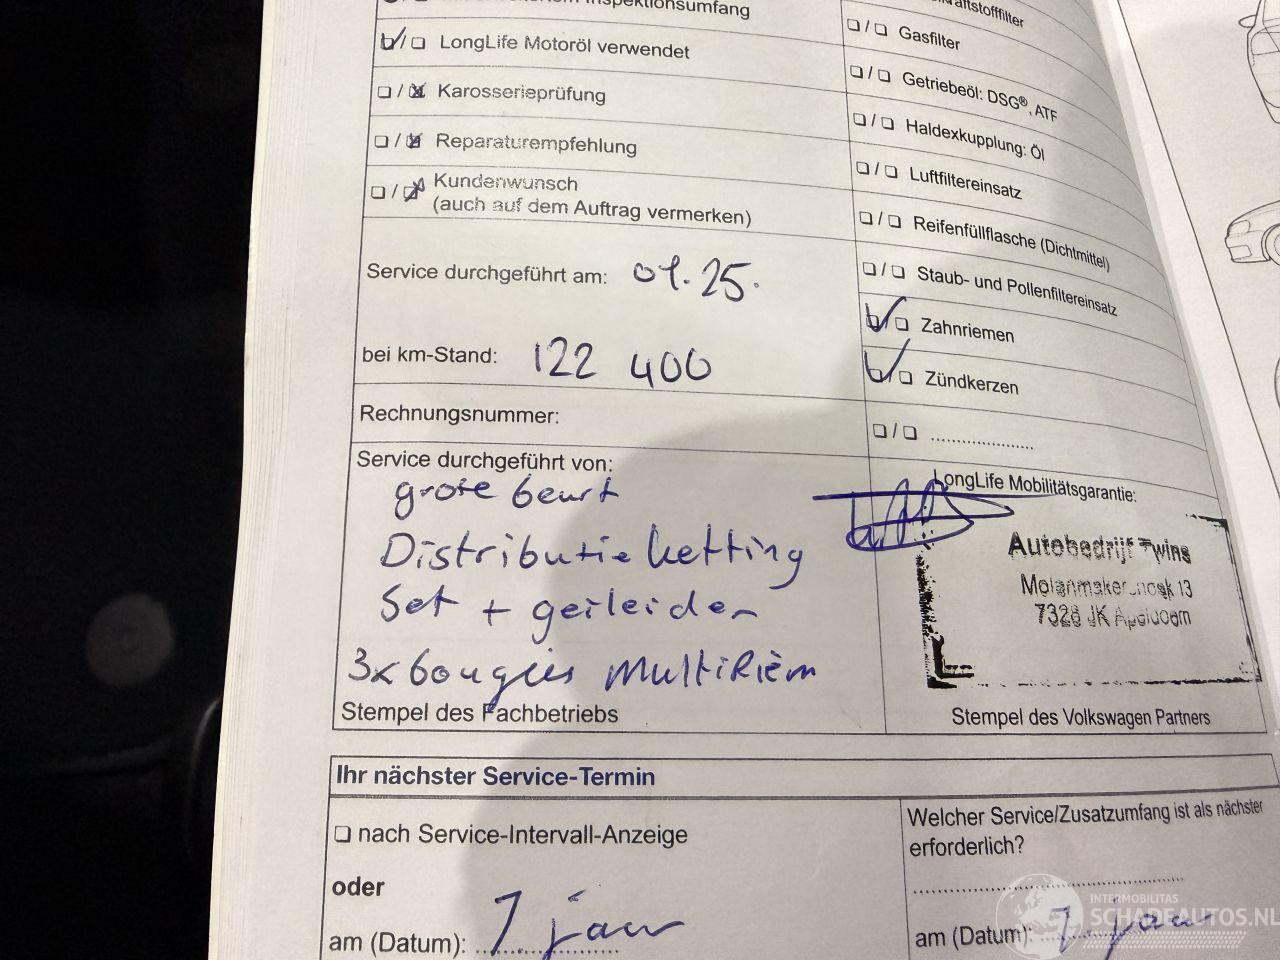 Inspektionsumfang
LongLife Motoröl verwendet
Karosserieprüfung
Reparaturempfehlung
Kundenwunsch
(auch auf dem Auftrag vermerken)
Service durchgeführt am: 01.25.
bei km-Stand: 122 400
Rechnungsnummer:
Service durchgeführt von:
grote beurt
Distributie ketting
Set + geileider
3x bougies MultiRiem
Stempel des Fachbetriebs
Kraftstofffilter
Gasfilter
Getriebeöl: DSG®, ATF
Haldexkupplung: Öl
Luftfiltereinsatz
Reifenfüllflasche (Dichtmittel)
Staub- und Pollenfiltereinsatz
Zahnriemen
Zündkerzen
LongLife Mobilitätsgarantie:
Autobedrijf Twins
Molenmakershoek 13
7328 JK Apeldoorn
Stempel des Volkswagen Partners
Ihr nächster Service-Termin
nach Service-Intervall-Anzeige
oder
am (Datum): 1 jaar
Welcher Service/Zusatzumfang ist als nächster
erforderlich?
am (Datum): 1 jaar
INTERMOBILITAS
SCHADEAUTOS.NL